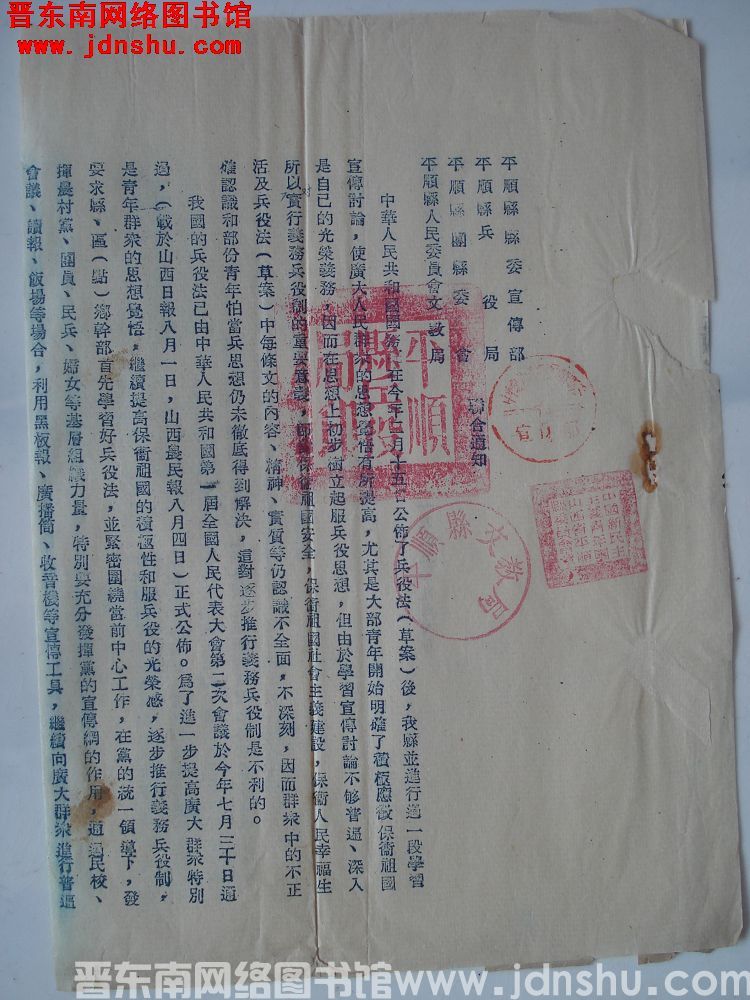 晋东南网络图书馆
www.jdnshu.com
平順縣縣委宣傳部
平順縣兵役局
平順縣團縣委會
平順縣人民委員會文教局
聯合通知
中華人民共和國國務院在今年二月十五日公佈了兵役法(草案)後,我縣並進行過一段學習
宣傳討論,使廣大人民群衆的思想覺悟有所提高,尤其是大部青年開始明確了積極應徵保衛祖國
是自己的光榮義務,因而在思想上初步樹立起服兵役思想,但由於學習宣傳討論不够普遍、深入
所以對實行義務兵役制的重要意義,保衛祖國安全,保衛祖國社會主義建設,保衛人民幸福生
活及兵役法(草案)中每條文的內容、精神、實質等仍認識不全面,不深刻,因而群衆中的不正
確認識和部份青年怕當兵思想仍未徹底得到解決,這對逐步推行義務兵役制是不利的。
我國的兵役法已由中華人民共和國第一屆全國人民代表大會第二次會議於今年七月三十日通
過,(載於山西日報八月一日,山西農民報八月四日)正式公佈。爲了進一步提高廣大群衆特別
是青年群衆的思想覺悟,繼續提高保衛祖國的積極性和服兵役的光榮感,逐步推行義務兵役制,
要求縣、區(點)鄉幹部首先學習好兵役法,並緊密圍繞當前中心工作,在黨的統一領導下,發
揮農村黨、團員、民兵、婦女等基層組織力量,特別要充分發揮黨的宣傳網的作用,通過民校、
會議、讀報、飯場等場合,利用黑板報、廣播筒、收音機等宣傳工具,繼續向廣大群衆進行普遍
平順
縣兵役
局印
平順縣文教局
晋东南网络图书馆www.jdnshu.com